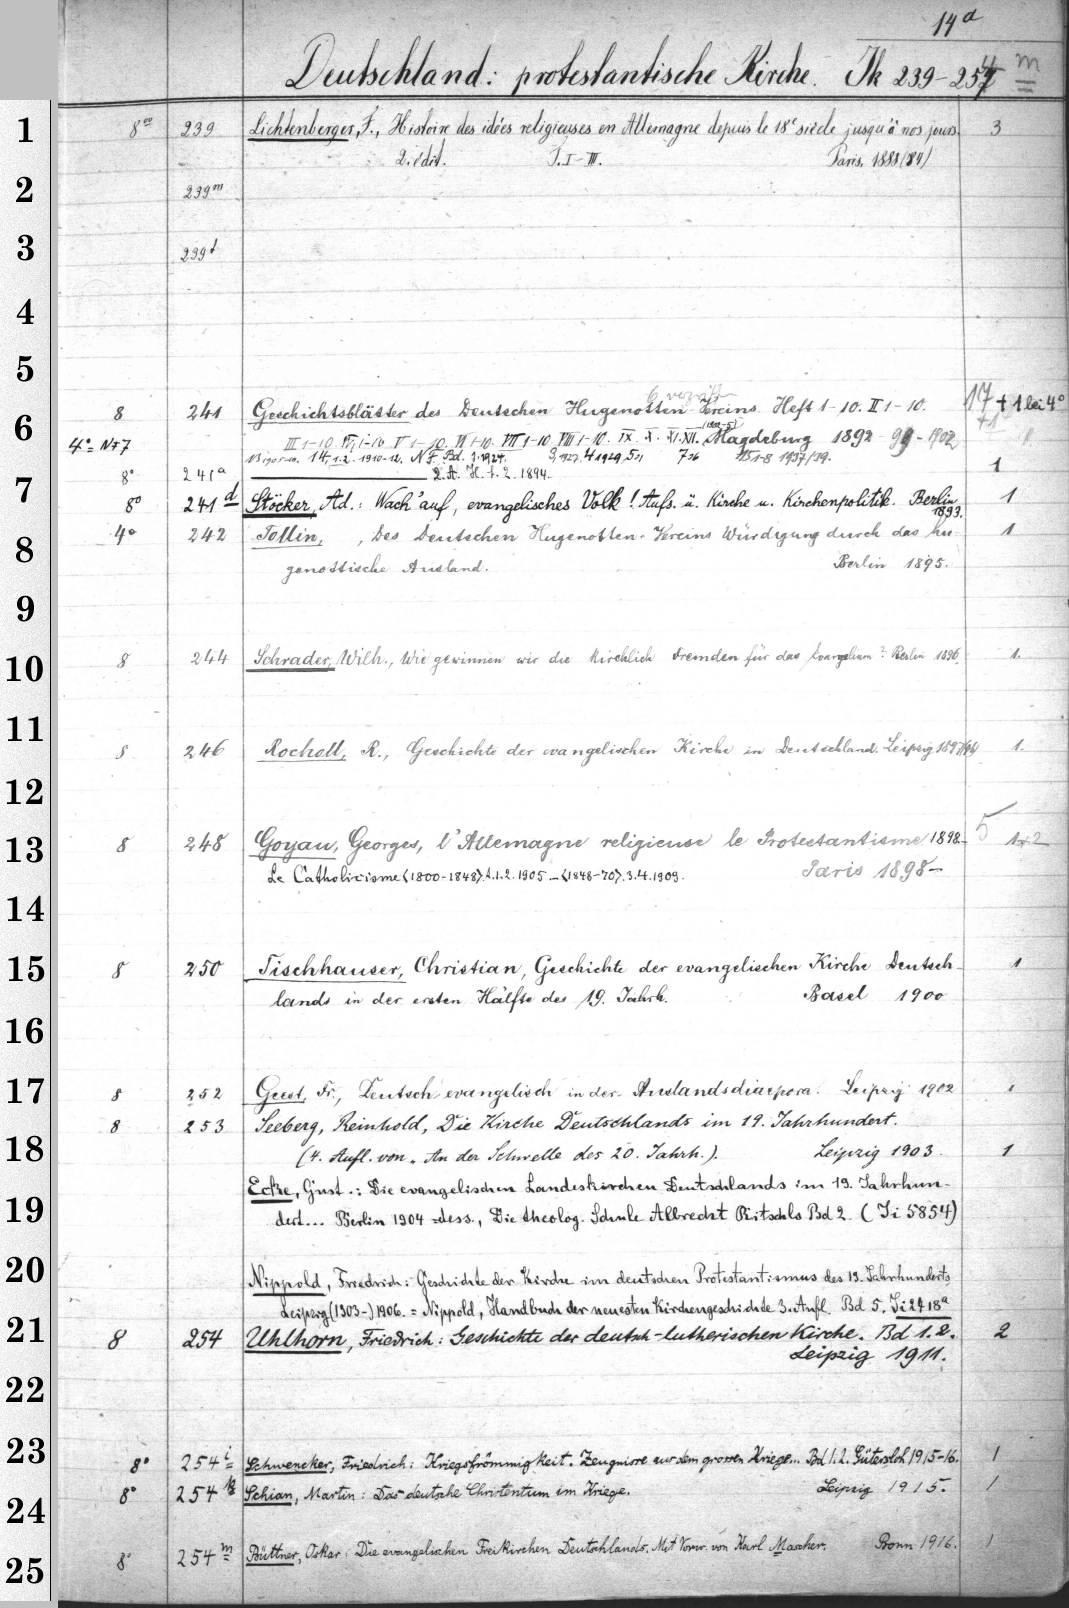 14a
Deutschland: protestantische Kirche. Tk 239-254 m
1 8vo 239 Lichtenberger, F., Histoire des idées religieuses en Allemagne depuis le 18e siècle jusqu'à nos jours. 3
2. édit. T. I-III. Paris. 1888 (84)
2 239m
3 239t
4
5
8 241 Geschichtsblätter des Deutschen Hugenotten-Vereins Heft 1-10. II 1-10. 17 + 1 bei 4o
6 III 1-10. IV, 1-10. V 1-10. VI 1-10. VII 1-10. VIII 1-10. IX. X. XI. XII. Magdeburg 1892 -1902
4o N F 7 14, 1.2. 1910-12. N F. Bd. 1927. 4 1929, 7 1-8 1937/39.
8o 241a 2. A. H. 1. 2. 1894. 1
7 8o 241d Stöcker, Ad.: Wach' auf, evangelisches Volk! Aufs. ü. Kirche u. Kirchenpolitik. Berlin 1893. 1
8 4o 242 Tollin, , Des Deutschen Hugenotten-Vereins Würdigung durch das hu- 1
genottische Ausland. Berlin 1895.
9
10 8 244 Schrader, Wilh., Wie gewinnen wir die kirchlich Fremden für das Evangelium? Berlin 1896. 1.
11 8 246 Rocholl, R., Geschichte der evangelischen Kirche in Deutschland. Leipzig 1897 1.
12
13 8 248 Goyau, Georges, l'Allemagne religieuse le Protestantisme 1898- 5 1+2
Le Catholicisme <1800-1848> t. 1. 2. 1905 - <1848-70> .3.4. 1909. Paris 1898-
14
15 8 250 Tischhauser, Christian, Geschichte der evangelischen Kirche Deutsch- 1
lands in der ersten Hälfte des 19. Jahrh. Basel 1900
16
17 8 252 Geest, Fr., Deutsch evangelisch in der Auslandsdiaspora. Leipzig 1902 1
8 253 Seeberg, Reinhold, Die Kirche Deutschlands im 19. Jahrhundert.
18 (4. Aufl. von „An der Schwelle des 20. Jahrh.). Leipzig 1903. 1
Ecke, Gust.: Die evangelischen Landeskirchen Deutschlands im 19. Jahrhun-
19 dert... Berlin 1904 = dess., Die theolog. Schule Albrecht Ritschls Bd 2. (Ti 5854)
20 Nippold, Friedrich: Geschichte der Kirche im deutschen Protestantismus des 19. Jahrhunderts
Leipzig (1903-) 1906. = Nippold, Handbuch der neuesten Kirchengeschichte 3. Aufl. Bd 5. Ti 2418a
21 8 254 Uhlhorn, Friedrich: Geschichte der deutsch-lutherischen Kirche. Bd 1. 2. 2
Leipzig 1911.
22
23 8o 254i Schwencker, Friedrich: Kriegsfrömmigkeit. Zeugnisse aus dem grossen Kriege... Bd 1. 2. Gütersloh 1915-16. 1
24 8o 254k Schian, Martin: Das deutsche Christentum im Kriege. Leipzig 1915. 1
25 8o 254m Büttner, Oskar: Die evangelischen Freikirchen Deutschlands. Mit Vorw. von Karl Mascher. Bonn 1916. 1